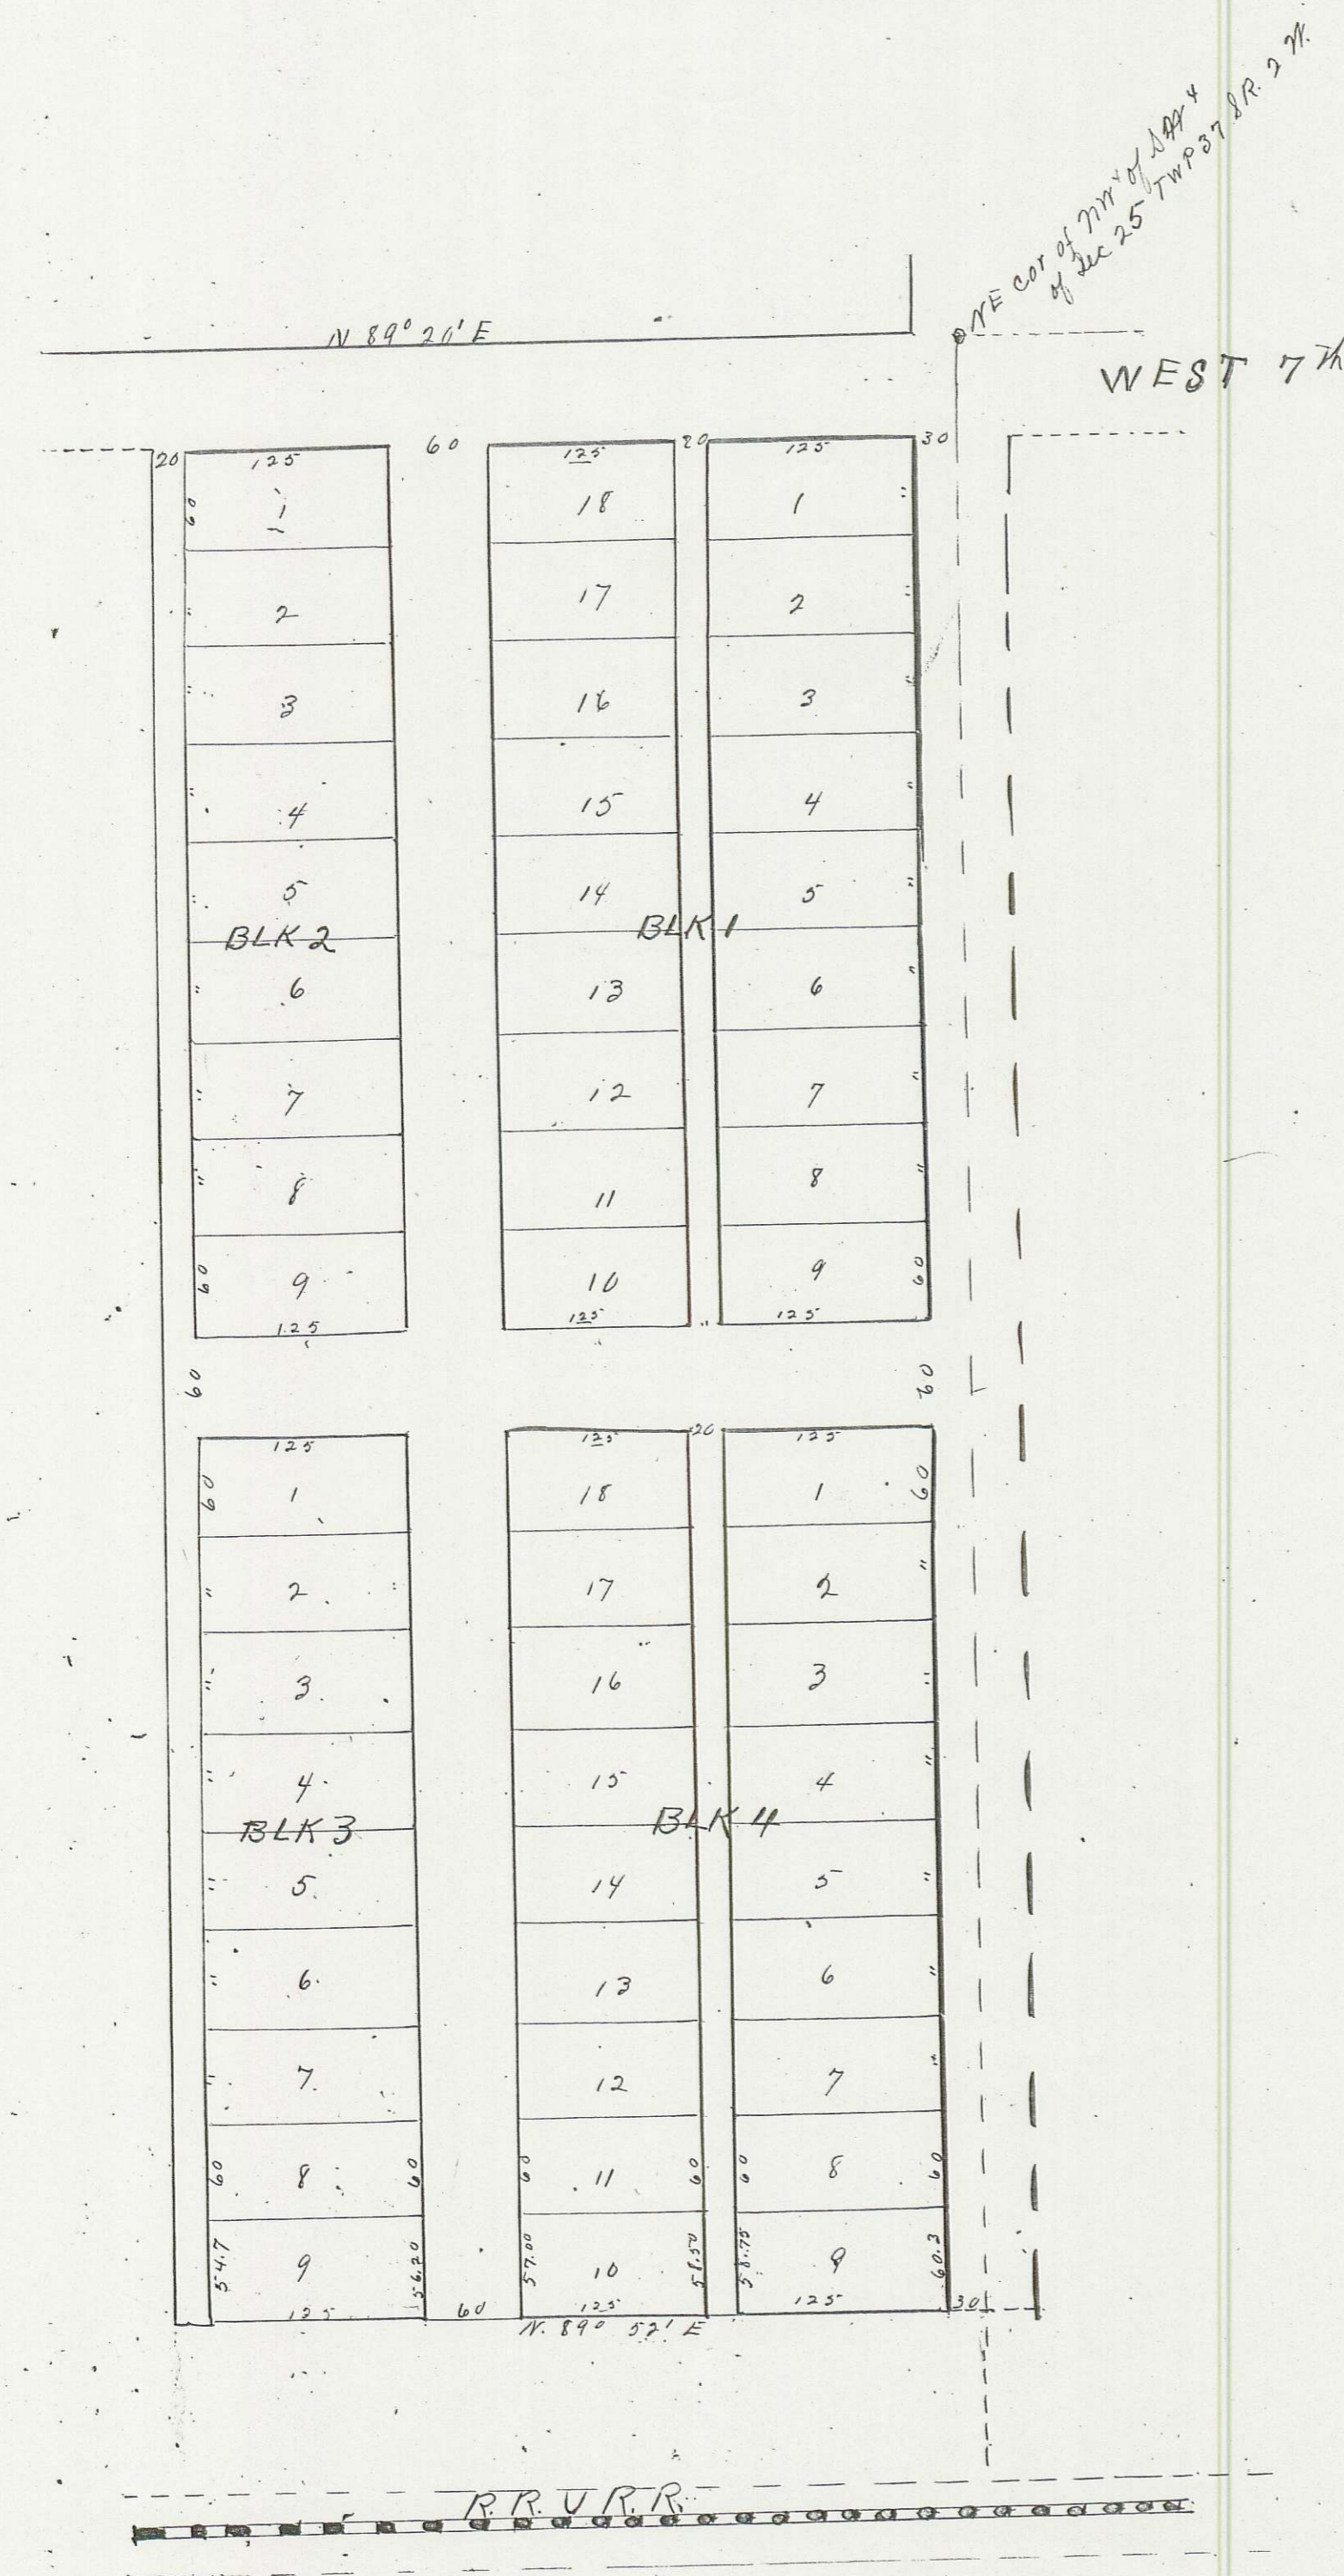 NE cor of NW ¼ of SW ¼
of Sec 25 TWP 37 S R. 2 W.
N 89° 20' E
WEST 7th
20 125 60 125 20 125 30
60 1 18 1 "
" 2 17 2 "
" 3 16 3 "
" 4 15 4 "
" 5 14 5 "
BLK 2 BLK 1
" 6 13 6 "
" 7 12 7 "
" 8 11 8 "
60 9 10 9 60
125 125 " 125
60 60
125 125 20 125
60 1 18 1 60
" 2 17 2 "
" 3 16 3 "
" 4 15 4 "
BLK 3 BLK 4
" 5 14 5 "
" 6 13 6 "
" 7 12 7 "
60 8 60 60 11 60 60 8 60
54.7 9 56.20 57.00 10 58.50 58.75 9 60.3
125 60 125 125 30
N. 89° 52' E
R. R. V R. R.